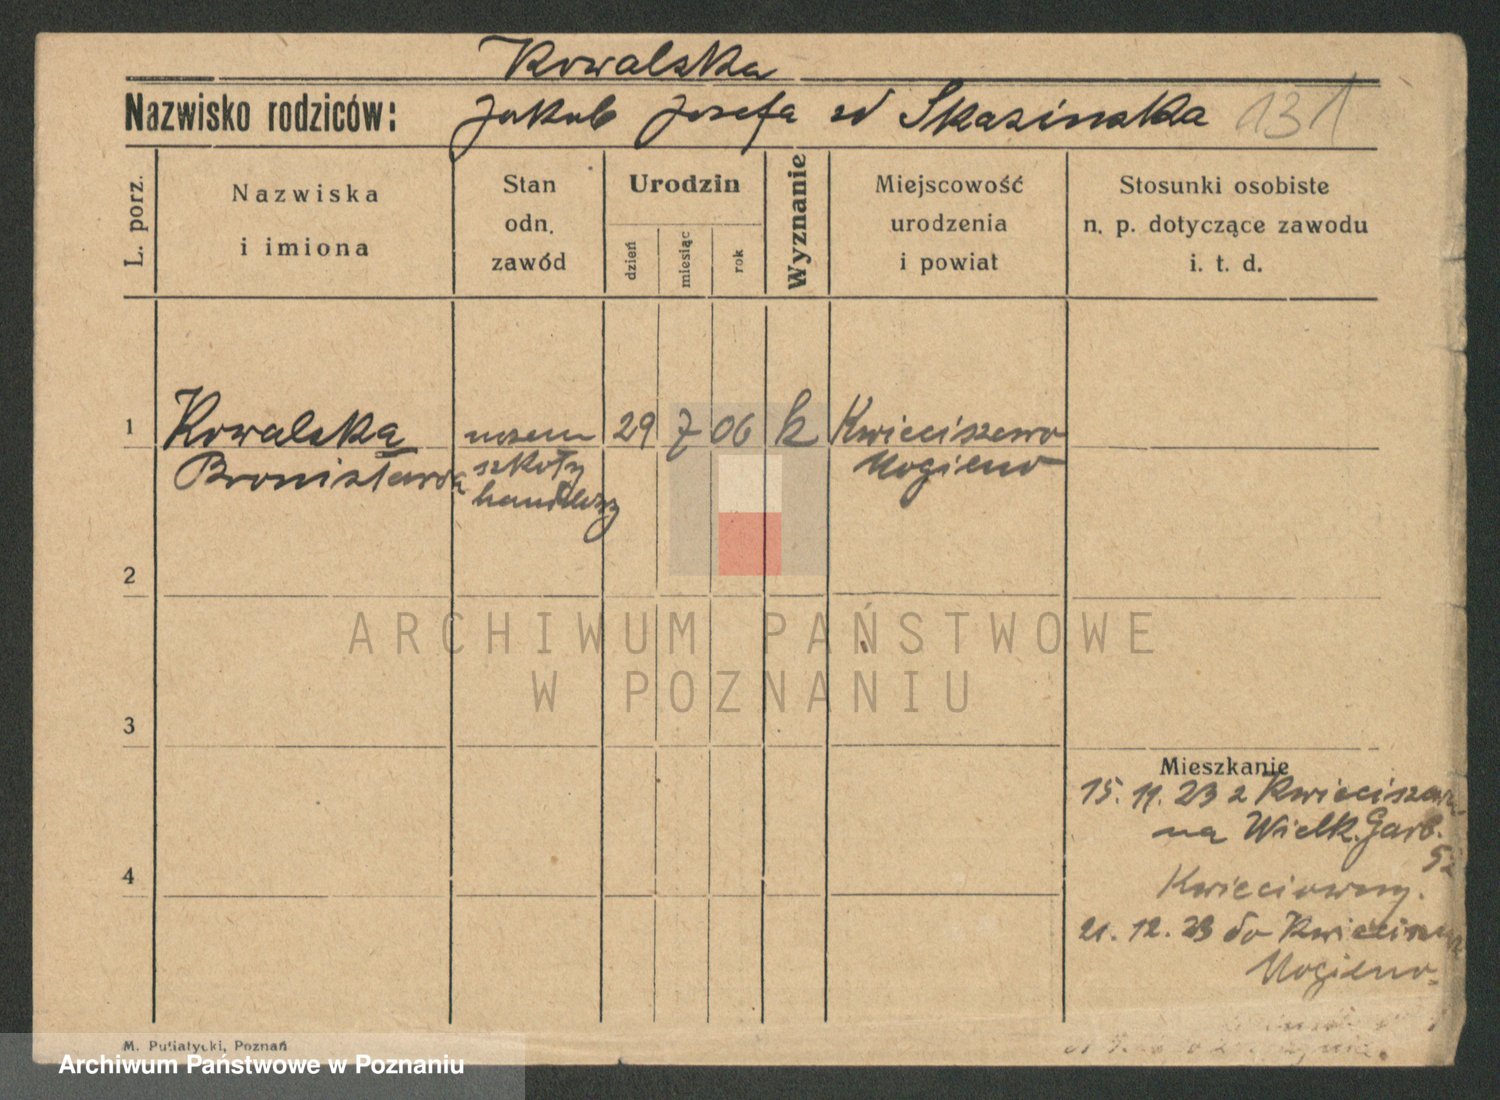 Kowalska
Nazwisko rodziców: Jakub Josefa zd Skasinska 131
L. porz.
Nazwiska
i imiona
Stan
odn.
zawód
Urodzin
dzień
miesiąc
rok
Wyznanie
Miejscowość
urodzenia
i powiat
Stosunki osobiste
n. p. dotyczące zawodu
i. t. d.
1 Kowalska 29 7 06 k Kwieciszewo
Bronisława szkoły Mogilno
handlowy
2
ARCHIWUM PAŃSTWOWE
W POZNANIU
3
Mieszkanie
15. 11. 23 z Kwieciszewa
na Wielk. Garb.
52
4
21. 12. 23 do Kwieciszewa
Mogilno
M. Putiatycki, Poznań
Archiwum Państwowe w Poznaniu